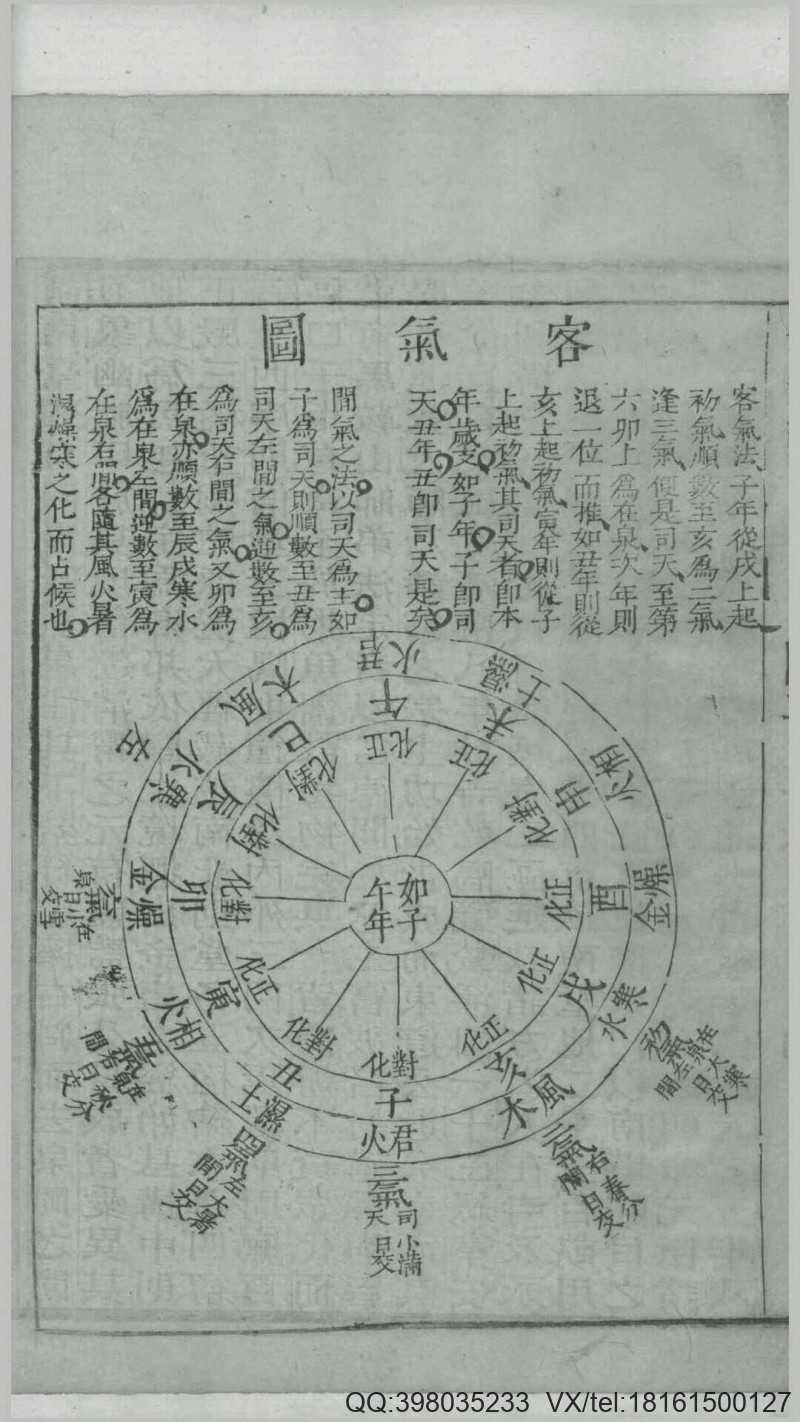 客氣圖
客氣法子年從戌上起
初氣順數至亥為二氣
逢三氣便是司天至第
六卯上為在泉次年則
退一位而推如丑年則從
亥上起初氣寅年則從子
上起初氣其司天者即本
年歲支如子年子即司
天丑年丑即司天是矣
間氣之法以司天為主如
子為司天則順數至丑為
司天左間之氣逆數至亥
為司天右間之氣又卯為
在泉亦順數至辰戌寒水
為在泉左間逆數至寅為
在泉右間各隨其風火暑
濕燥寒之化而占候也
如子
午年
子
對化
君火
三氣
司天
小滿日交
丑
對化
濕土
四氣
左間
大暑日交
寅
正化
相火
五氣
在泉右間
秋分日交
卯
對化
燥金
六氣
在泉
小雪日交
辰
對化
寒水
巳
對化
風木
午
正化
君火
未
正化
濕土
申
對化
相火
酉
正化
燥金
戌
正化
寒水
初氣
在泉左間
大寒日交
亥
正化
風木
二氣
右間
春分日交
QQ:398035233 VX/tel:18161500127